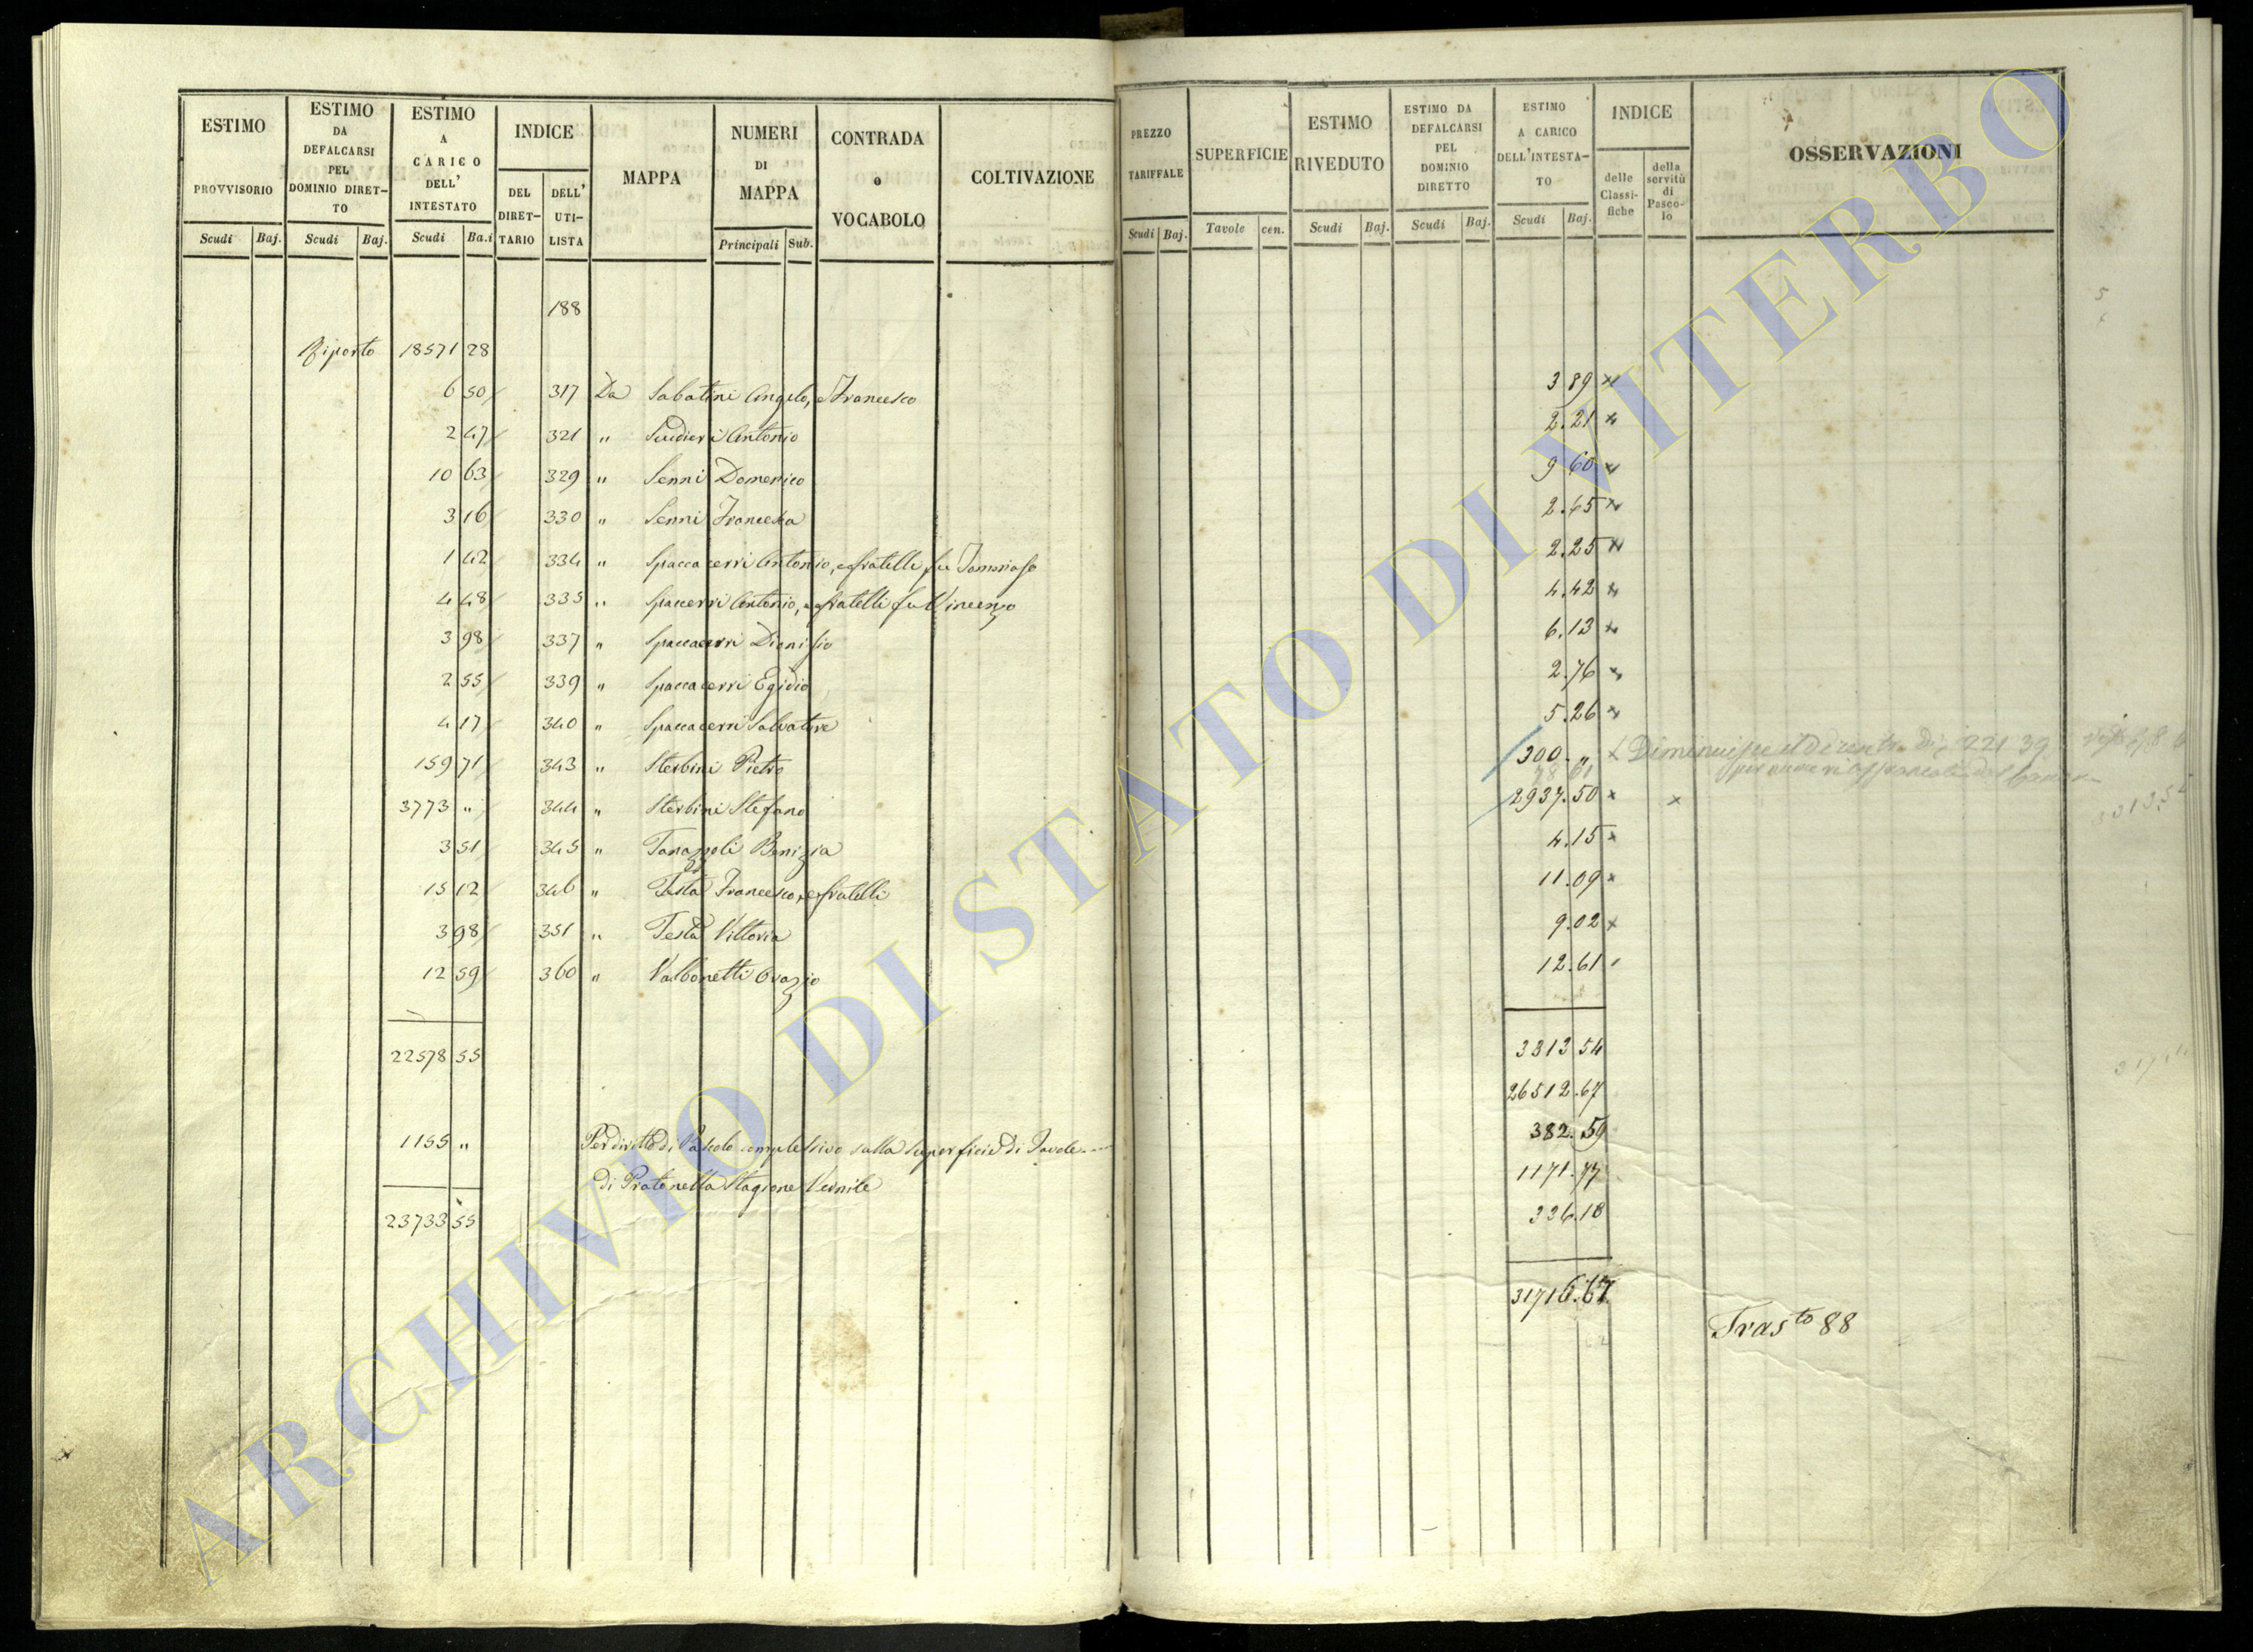 ESTIMO PROVVISORIO
ESTIMO DA DEFALCARSI PEL DOMINIO DIRET-TO
ESTIMO A CARICO DELL' INTESTATO
INDICE
DEL DIRET-TARIO
DELL' UTI-LISTA
MAPPA
NUMERI DI MAPPA
CONTRADA o VOCABOLO
COLTIVAZIONE
Scudi Baj. Scudi Baj. Scudi Ba.i Principali Sub.
188
Riporto 18571 28
6 50 317 Da Sabatini Angelo, e Francesco
2 47 321 " Scudieri Antonio
10 63 329 " Senni Domenico
3 16 330 " Senni Francesca
1 42 334 " Spaccacerri Antonio, e fratelli fu Tommaso
4 48 335 " Spaccerri Antonio, e fratelli fu Vincenzo
3 98 337 " Spaccacerri Dionisio
2 55 339 " Spaccacerri Egidio
4 17 340 " Spaccacerri Salvatore
159 71 343 " Sterbini Pietro
3773 " 344 " Sterbini Stefano
3 51 345 " Benizia
15 12 346 " Testa Francesco, e fratelli
3 98 351 " Testa Vittoria
12 59 360 " Valbonetti Orazio
22578 55
1155 " Per diritto di Pascolo complessivo sulla superficie di Tavole
di Prato nella Stagione Vernile
23733 55
PREZZO TARIFFALE
SUPERFICIE
ESTIMO RIVEDUTO
ESTIMO DA DEFALCARSI PEL DOMINIO DIRETTO
ESTIMO A CARICO DELL'INTESTA-TO
INDICE
delle Classi-fiche
della servitù di Pasco-lo
OSSERVAZIONI
Scudi Baj. Tavole cen. Scudi Baj. Scudi Baj. Scudi Baj.
3 89 x
2.21 x
9 60 x
2.65 x
2.25 x
4.42 x
6.13 x
2.76 x
5.26 x
300 " x Diminuisce 221 39
2937.50 x x
4.15 x
11.09 x
9.02 x
12.61
3313 54
26512.67
382.59
1171.77
336.18
31716.67
Tras.to 88
ARCHIVIO DI STATO DI VITERBO